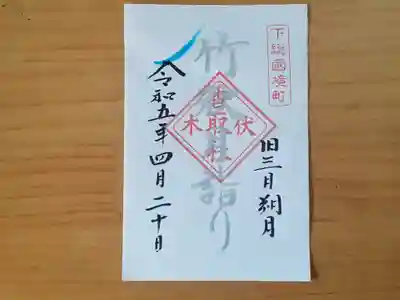 下総国境町
旧三月朔月
竹
詣り
香取社
伏木
令和五年四月二十日